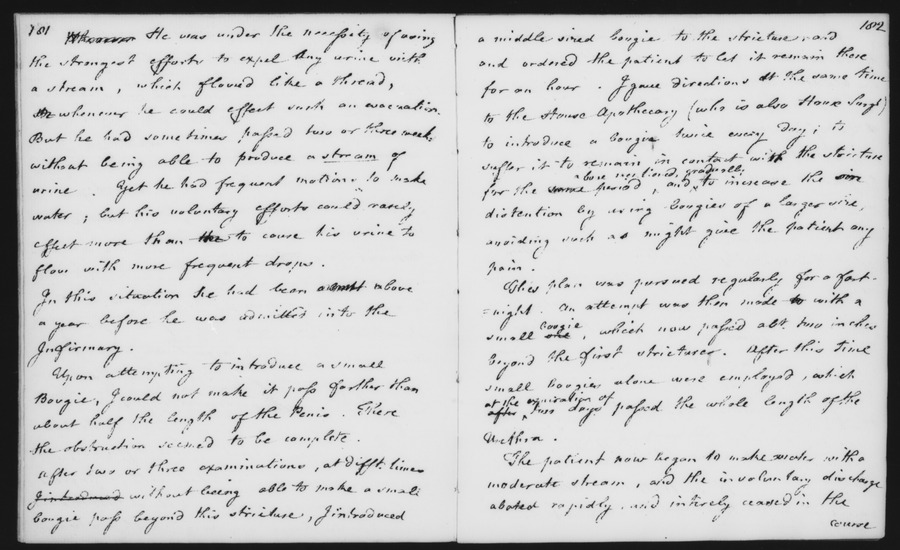 181
He was under the necessity of using
the strongest efforts to expel any urine with
a stream, which flowed like a thread,
whenever he could effect such an evacuation.
But he had sometimes passed two or three weeks
without being able to produce a stream of
urine. Yet he had frequent motions to make
water; but his voluntary efforts could rarely
effect more than the to cause his urine to
flow with more frequent drops.
In this situation he had been above
a year before he was admitted into the
Infirmary.
Upon attempting to introduce a small
Bougie, I could not make it pass farther than
about half the length of the Penis. There
the obstruction seemed to be complete.
After two or three examinations, at difft. times
I introduced without being able to make a small
bougie pass beyond this stricture, I introduced
182
a middle sized bougie to the stricture; and
and ordered the patient to let it remain there
for an hour. I gave directions at the same time
to the House Apothecary (who is also House Surgn)
to introduce a bougie twice every day; to
suffer it to remain in contact with the stricture
above mentioned, gradually
for the same period, and to increase the size
distention by using bougies of a larger size,
avoiding such as might give the patient any
pain.
This plan was pursued regularly for a fort-
=night. An attempt was then made to with a
bougie
small one, which now passed abt. two inches
beyond the first stricture. After this time
small bougies alone were employed, which
at the expiration of
after two days passed the whole length of the
Urethra.
The patient now began to make water with a
moderate stream, and the involuntary discharge
abated rapidly, and intirely ceased in the
course